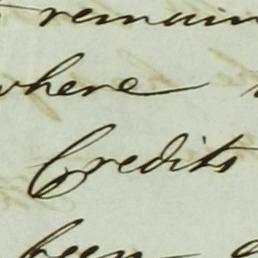 remain
where
Credits
been